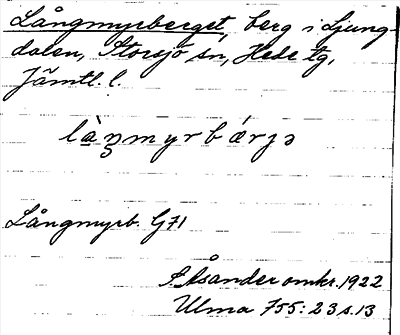 Långmyrberget, berg i Ljung-
dalen, Storsjö sn, Hede tg,
Jämtl. l.
Långmyrb. G71
S. Åsander omkr. 1922
Ulma 755:23 s.13